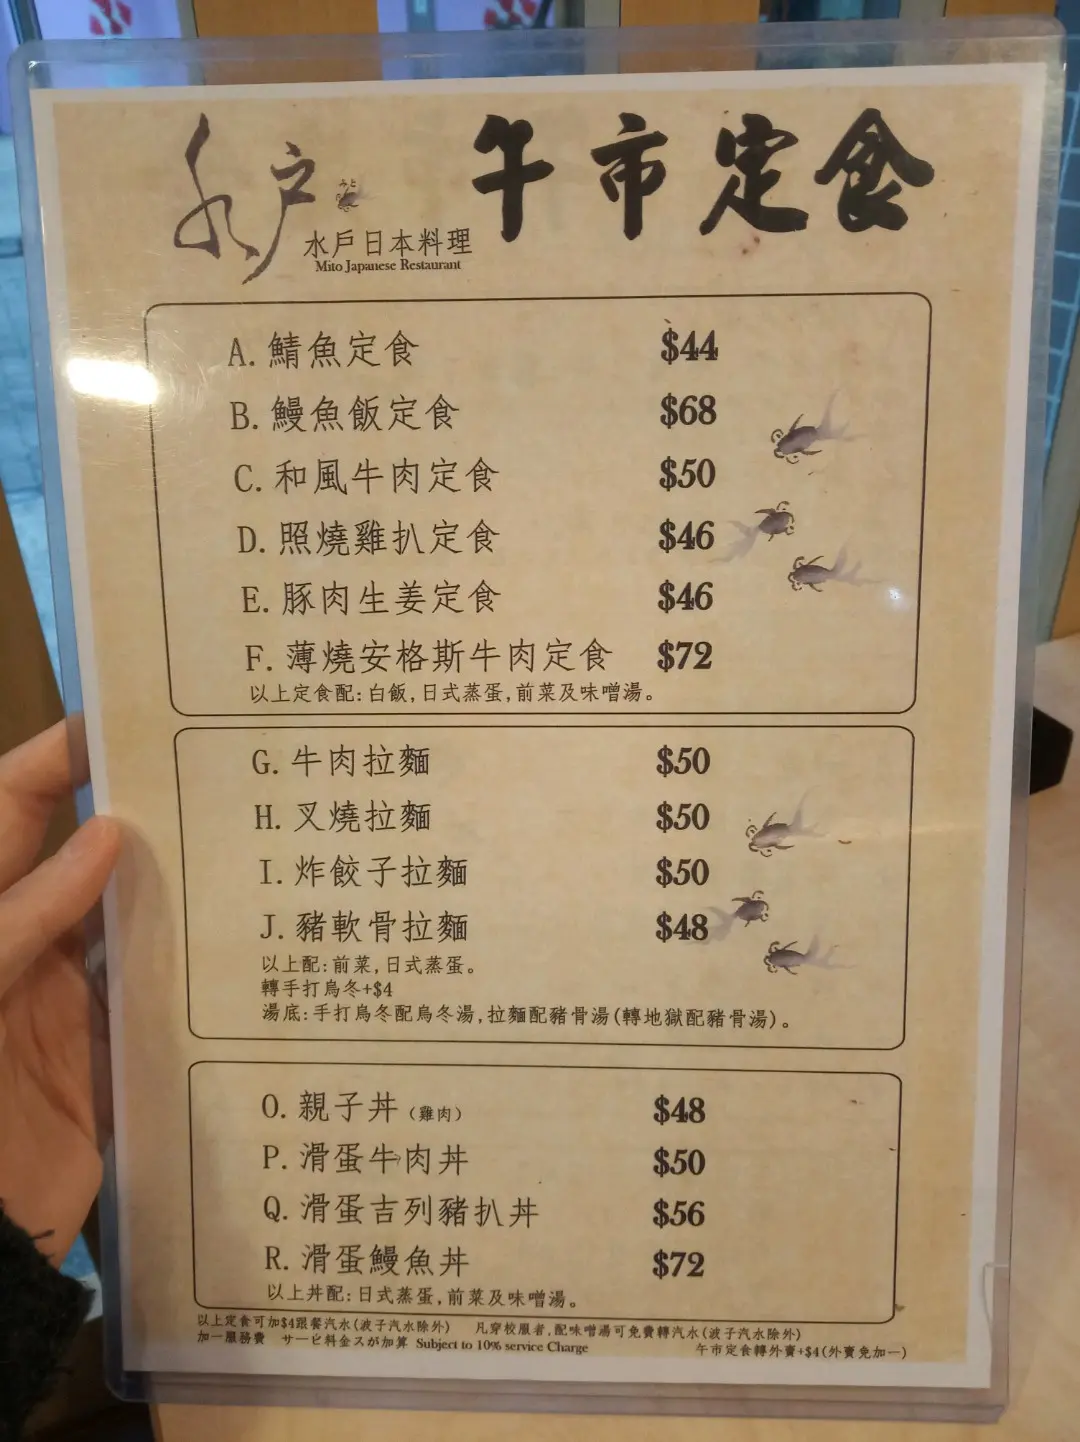 水戶 みと 午市定食
水戶日本料理
Mito Japanese Restaurant
A. 鯖魚定食 $44
B. 鰻魚飯定食 $68
C. 和風牛肉定食 $50
D. 照燒雞扒定食 $46
E. 豚肉生姜定食 $46
F. 薄燒安格斯牛肉定食 $72
以上定食配:白飯,日式蒸蛋,前菜及味噌湯。
G. 牛肉拉麵 $50
H. 叉燒拉麵 $50
I. 炸餃子拉麵 $50
J. 豬軟骨拉麵 $48
以上配:前菜,日式蒸蛋。
轉手打烏冬+$4
湯底:手打烏冬配烏冬湯,拉麵配豬骨湯(轉地獄配豬骨湯)。
O. 親子丼(雞肉) $48
P. 滑蛋牛肉丼 $50
Q. 滑蛋吉列豬扒丼 $56
R. 滑蛋鰻魚丼 $72
以上丼配:日式蒸蛋,前菜及味噌湯。
以上定食可加$4跟餐汽水(波子汽水除外) 凡穿校服者,配味噌湯可免費轉汽水(波子汽水除外)
加一服務費 サービ料金スが加算 Subject to 10% service Charge 午市定食轉外賣+$4(外賣免加一)